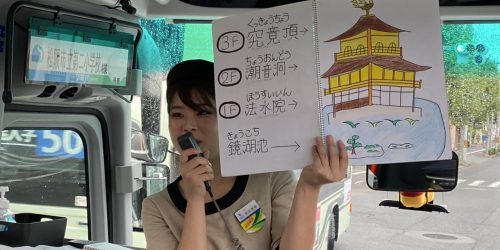 くっきょうちょう
3F 究竟頂→
ちょうおんどう
2F 潮音洞→
ほうすいいん
1F 法水院→
きょうこち
鏡湖池→
50